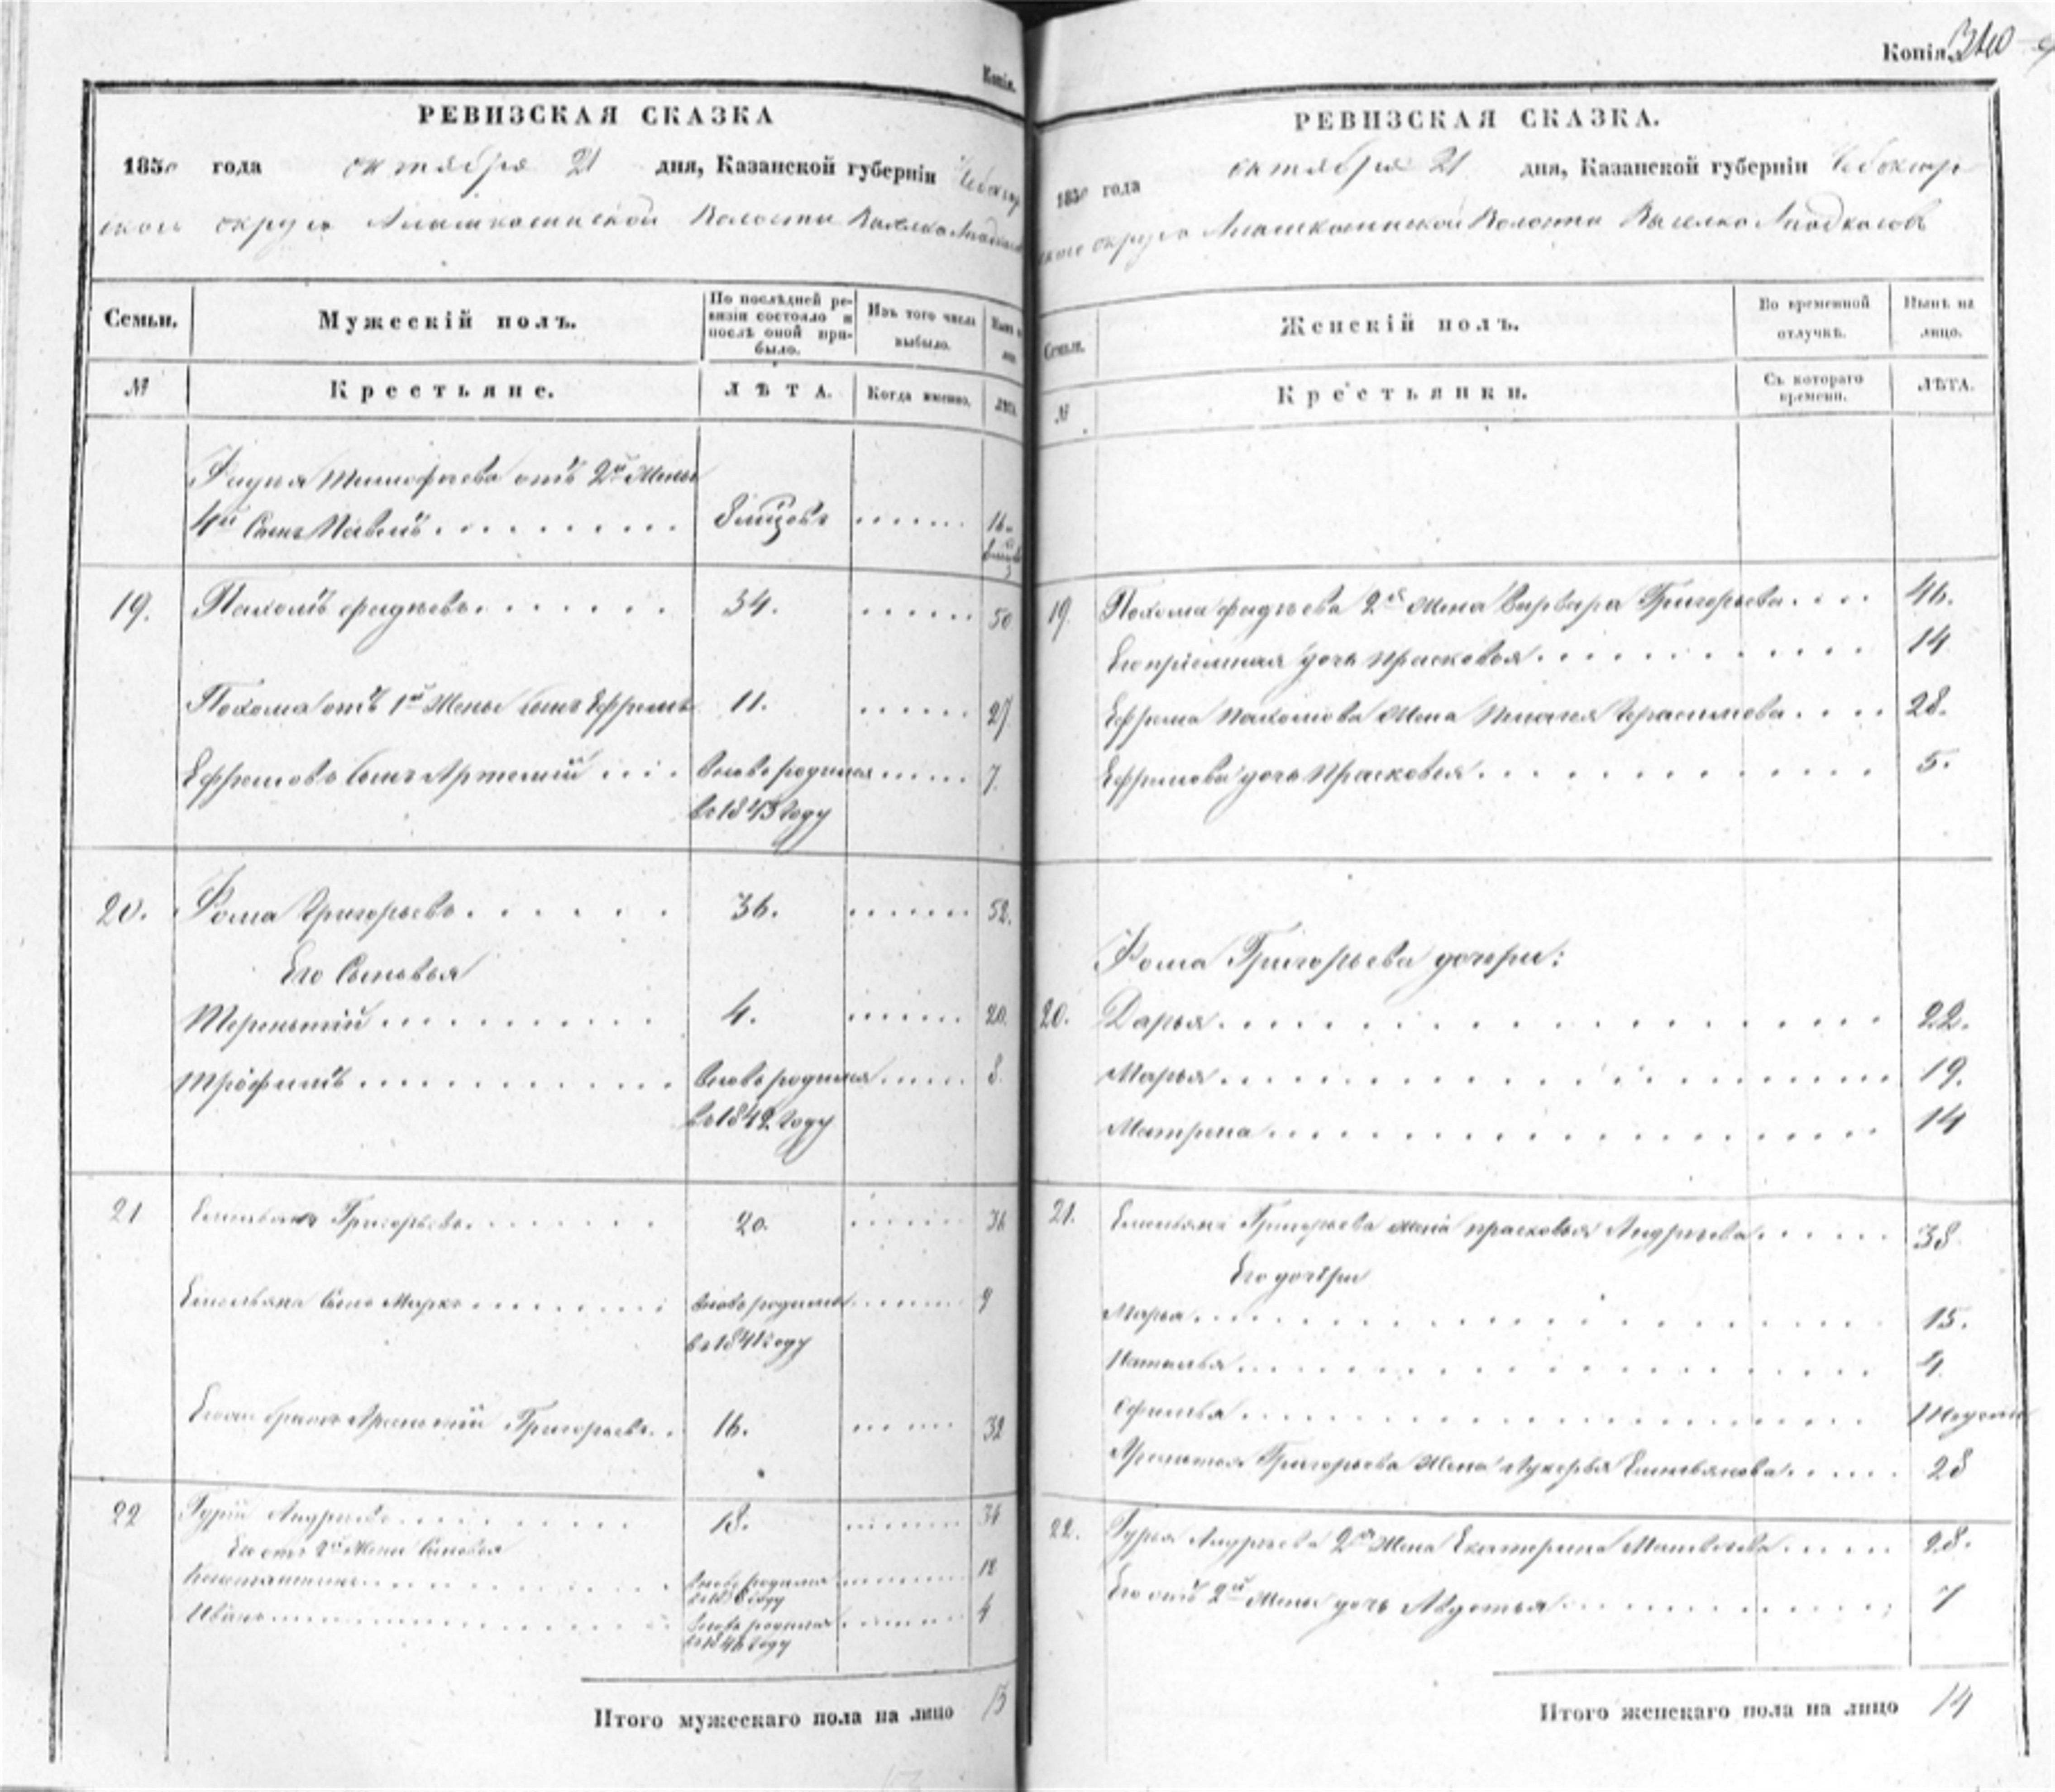 Копія.
РЕВИЗСКАЯ СКАЗКА
1850 года октября 21 дня, Казанской губерніи Чебоксар
скаго округа Волости Выселка
Семьи. Мужескій полъ. По послѣдней ре-
визіи состояло и
послѣ оной при-
было. Изъ того числа
выбыло. Нынѣ на
лицо.
№ Крестьяне. ЛѢТА. Когда именно. ЛѢТА.
Фадея Тимофеева отъ 2й Жены
4й Сынъ Павелъ 16.
19. Пахомъ Фадѣевъ 34. 50
Пахома отъ 1й Жены сынъ Ефремъ 11. 27
Ефремовъ сынъ Артемий вновь родился 7.
въ 1843 году
20. Фома Григорьевъ 36. 52.
Его Сыновья
Терентий 4. 20.
Трофимъ вновь родился 8.
въ 1842 году
21 Емельянъ Григорьевъ 20. 36
Емельяна сынъ Марко вновь родился 9
въ 1841 году
братъ Арсентий Григорьевъ 16. 32
22 Гурій Андреевъ 18. 34
Его отъ Жены Сыновья
Константинъ вновь родился 12
году
Иванъ вновь родился 4
въ 1846 году
Итого мужескаго пола на лицо 15
Копія.
РЕВИЗСКАЯ СКАЗКА.
1850 года октября 21 дня, Казанской губерніи Чебоксар
скаго округа Волости Выселка
Семьи. Женскій полъ. Во временной
отлучкѣ. Нынѣ на
лицо.
№ Крестьянки. Съ котораго
времени. ЛѢТА.
19 Пахома Фадѣева 2я Жена Варвара Григорьева 46.
Его приемная дочь Прасковья 14
Ефрема Пахомова Жена Пелагея Герасимова 28.
Ефремова дочь Прасковья 5.
Фома Григорьева дочери:
20. Дарья 22.
Марья 19.
Матрена 14
21. Емельяна Григорьева жена Прасковья Андреева 38
Его дочери
Марья 15.
Наталья 4
Офимья
Арсентия Григорьева Жена Лукерья Емельянова 28
22. Гурья Андреева 2я Жена Екатерина Матвеева 28.
Его отъ 2й Жены дочь Авдотья 7
Итого женскаго пола на лицо 14